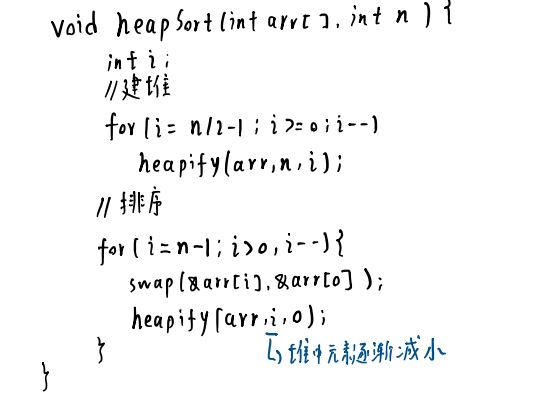 void heapSort(int arr[], int n) {
int i;
//建堆
for(i= n/2-1; i>=0; i--)
heapify(arr,n,i);
//排序
for(i=n-1; i>0, i--){
swap(&arr[i],&arr[0]);
heapify(arr,i,0);
} 堆中元素逐渐减小
}